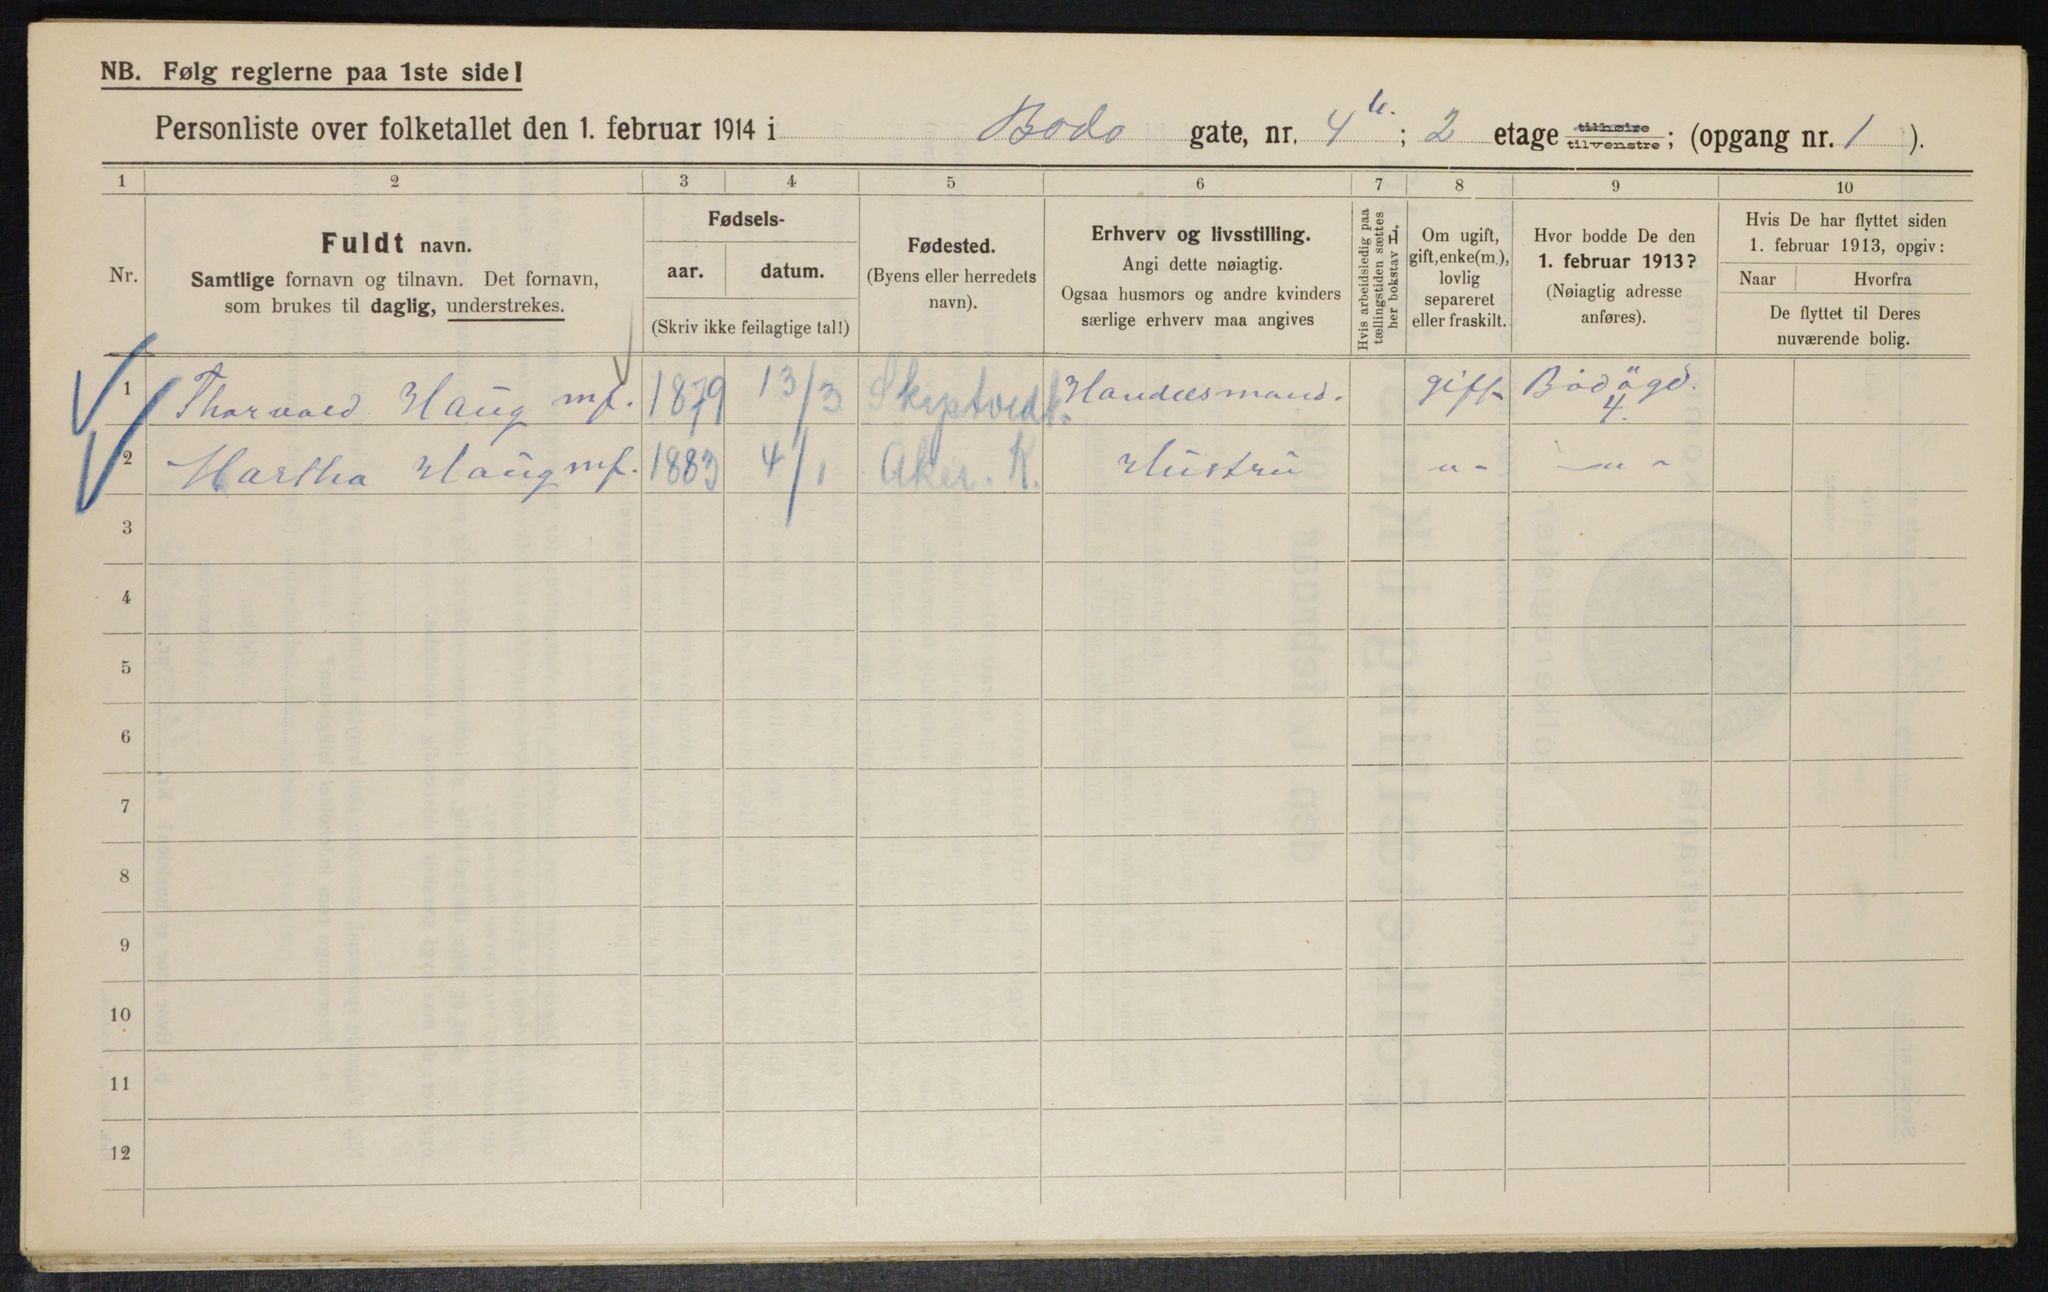 NB. Følg reglerne paa 1ste side!
Personliste over folketallet den 1. februar 1914 i Bodo gate, nr. 4 b.; 2 etage tilhøire tilvenstre; (opgang nr. 1).
1 2 3 4 5 6 7 8 9 10
Nr.
Fuldt navn.
Samtlige fornavn og tilnavn. Det fornavn,
som brukes til daglig, understrekes.
Fødsels-
aar. datum.
(Skriv ikke feilagtige tal!)
Fødested.
(Byens eller herredets
navn).
Erhverv og livsstilling.
Angi dette nøiagtig.
Ogsaa husmors og andre kvinders
særlige erhverv maa angives
Hvis arbeidsledig paa
tællingstiden sættes
her bokstav L.
Om ugift,
gift, enke(m.),
lovlig
separeret
eller fraskilt.
Hvor bodde De den
1. februar 1913?
(Nøiagtig adresse
anføres).
Hvis De har flyttet siden
1. februar 1913, opgiv:
Naar Hvorfra
De flyttet til Deres
nuværende bolig.
1 Thorvald Haug mf. 1879 13/3 Skiptvedt. Handelsmand. gift Bodögd. 4.
2 Martha Haug mf. 1883 4/1 Aker. K. Hustru -"- -"-
3
4
5
6
7
8
9
10
11
12